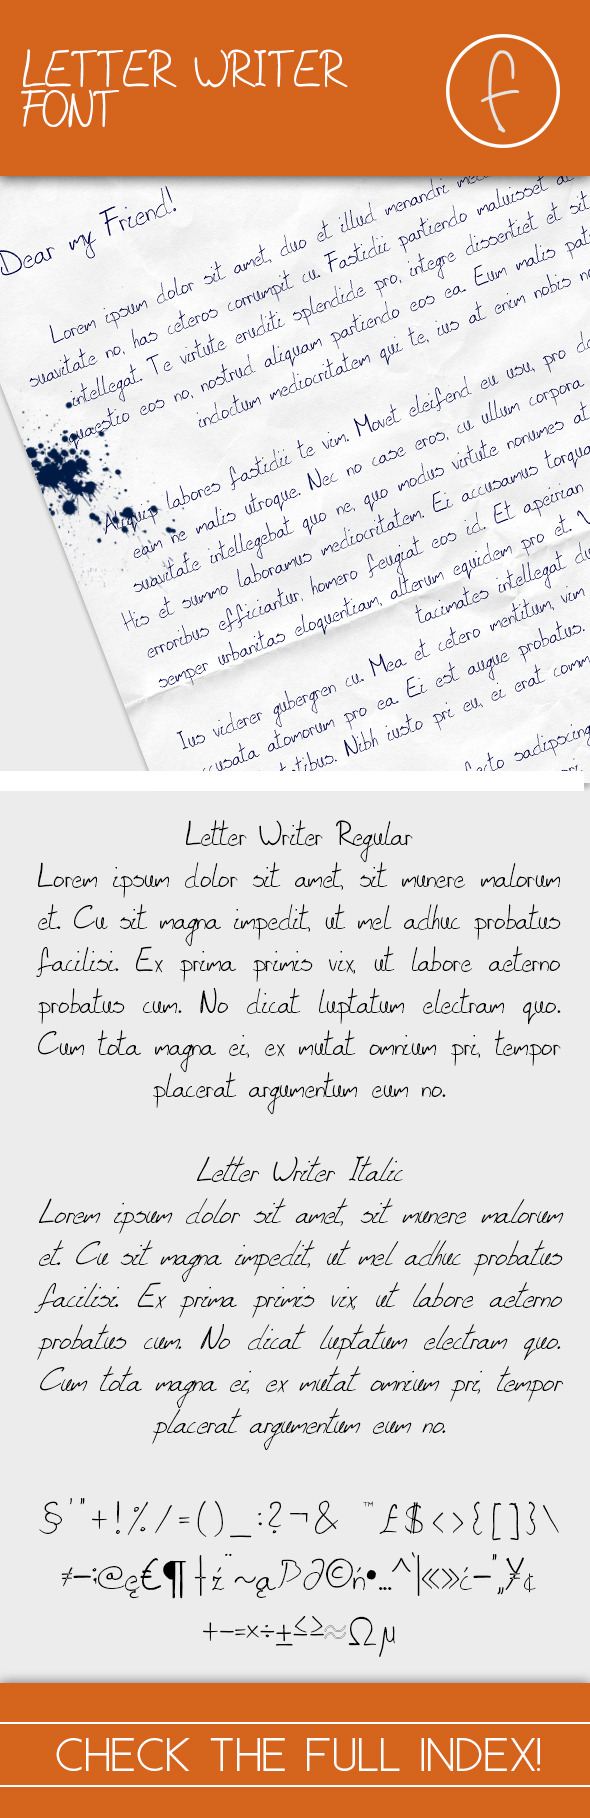 LETTER WRITER
FONT
f
Dear my Friend!
Lorem ipsum dolor sit amet, duo et illud menandri
suavitate no, has ceteros corrumpit cu. Fastidii partiendo maluisset
intellegat. Te virtute eruditi splendide pro, integre dissentiet et sit
quaestio eos no, nostrud aliquam partiendo eos ea. Eum malis
indoctum mediocritatem qui te, ius at enim nobis
Aliquip labores fastidii te vim. Movet eleifend eu usu, pro
eam ne malis utroque. Nec no case eros, cu ullum corpora
suavitate intellegebat quo ne, quo modus virtute nonumes at
His et summo laboramus mediocritatem. Ei accusamus
erroribus efficiantur, homero feugiat eos id. Et apeirian
semper urbanitas eloquentiam, alterum equidem pro et.
tacimates intellegat
Ius viderer gubergren cu. Mea et cetero mentitum, vim
atomorum pro ea. Ei est augue probatus.
Nibh iusto pri eu, ei erat
sadipscing
Letter Writer Regular
Lorem ipsum dolor sit amet, sit munere malorum
et. Cu sit magna impedit, ut mel adhuc probatus
facilisi. Ex prima primis vix, ut labore aeterno
probatus cum. No dicat luptatum electram quo.
Cum tota magna ei, ex mutat omnium pri, tempor
placerat argumentum eum no.
Letter Writer Italic
Lorem ipsum dolor sit amet, sit munere malorum
et. Cu sit magna impedit, ut mel adhuc probatus
facilisi. Ex prima primis vix, ut labore aeterno
probatus cum. No dicat luptatum electram quo.
Cum tota magna ei, ex mutat omnium pri, tempor
placerat argumentum eum no.
§'"+!%/=()_:?¬& ™£$<>{[]}\
≠–;@ę€¶†ź¨~ąÐ∂©ń•…^`|«»ć–"„¥¢
+−=×÷±≤≥≈Ωµ
CHECK THE FULL INDEX!